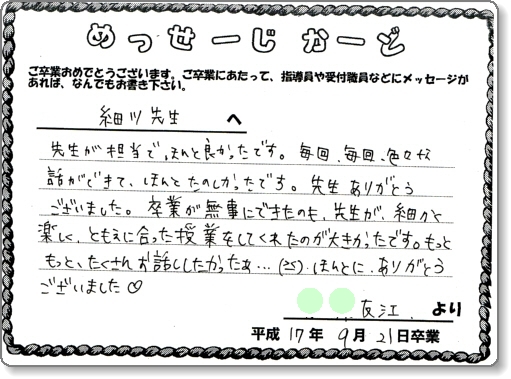 めっせーじ かーど
ご卒業おめでとうございます。ご卒業にあたって、指導員や受付職員などにメッセージが
あれば、なんでもお書き下さい。
細川先生 へ
先生が担当で、ほんと良かったです。毎回、毎回、色々な
話ができて、ほんとたのしかったです。先生ありがとう
ございました。卒業が無事にできたのも、先生が、細かく
楽しく、ともえに合った授業をしてくれたのが大きかったです。もっと
もっと、たくさんお話ししたかったぁ…(>_<) ほんとに、ありがとう
ございました♡
友江 より
平成 17年 9月 21日卒業